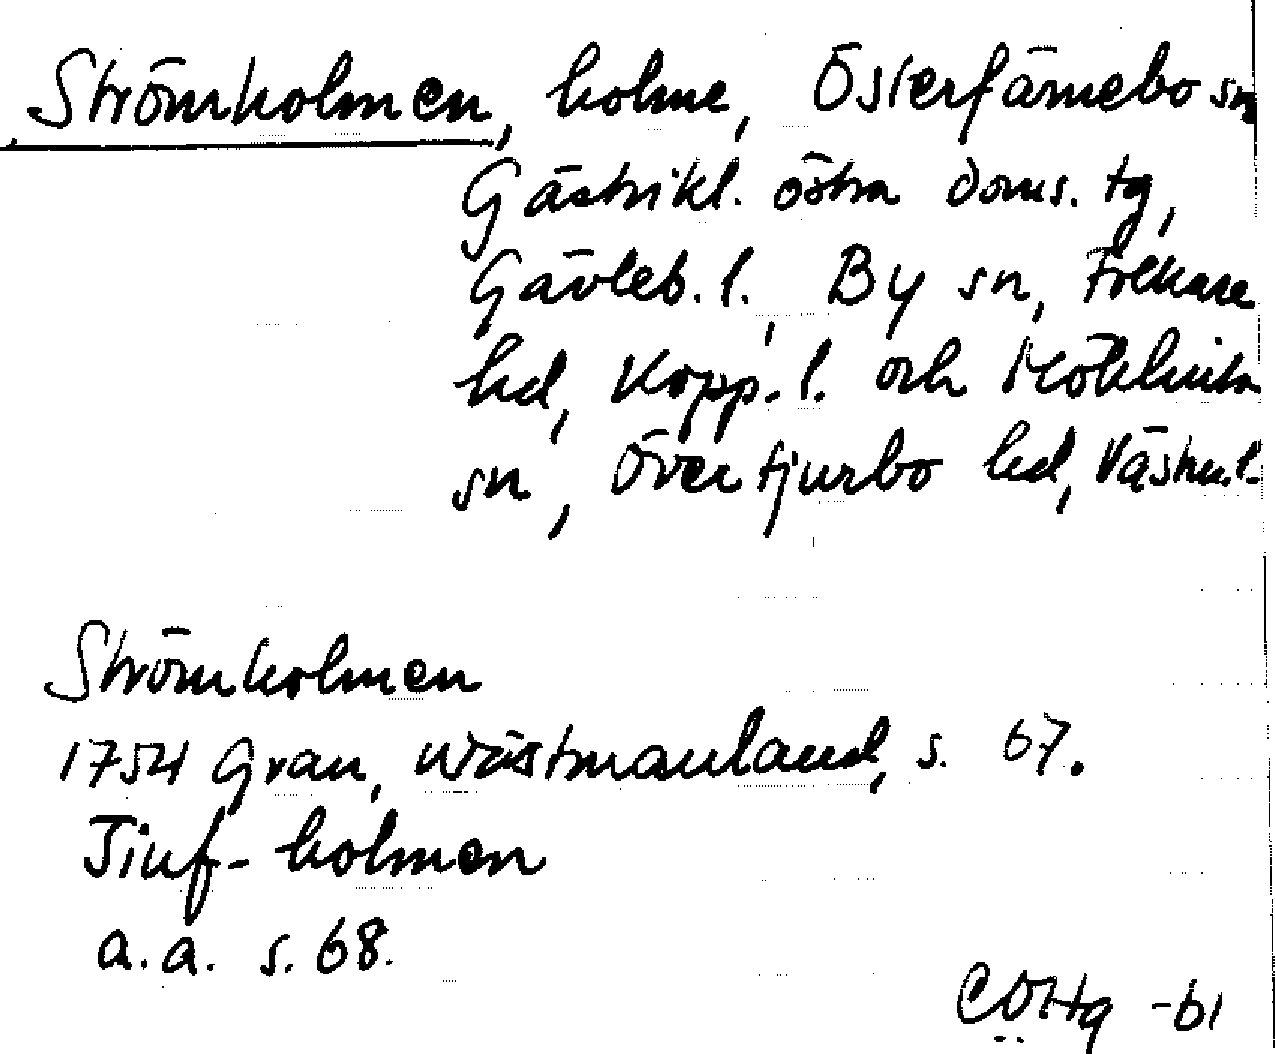 Strömholmen, holme, Österfärnebo sn
Gästrikl. östra doms. tg,
Gävleb. l., By sn, Folkare
hd, Kopp. l. och Möklinta
sn, Övertjurbo hd, Västm.l.
Strömholmen
1754 Grau, Wästmanland, s. 67.
Tiuf-holmen
a. a. s. 68.
-61